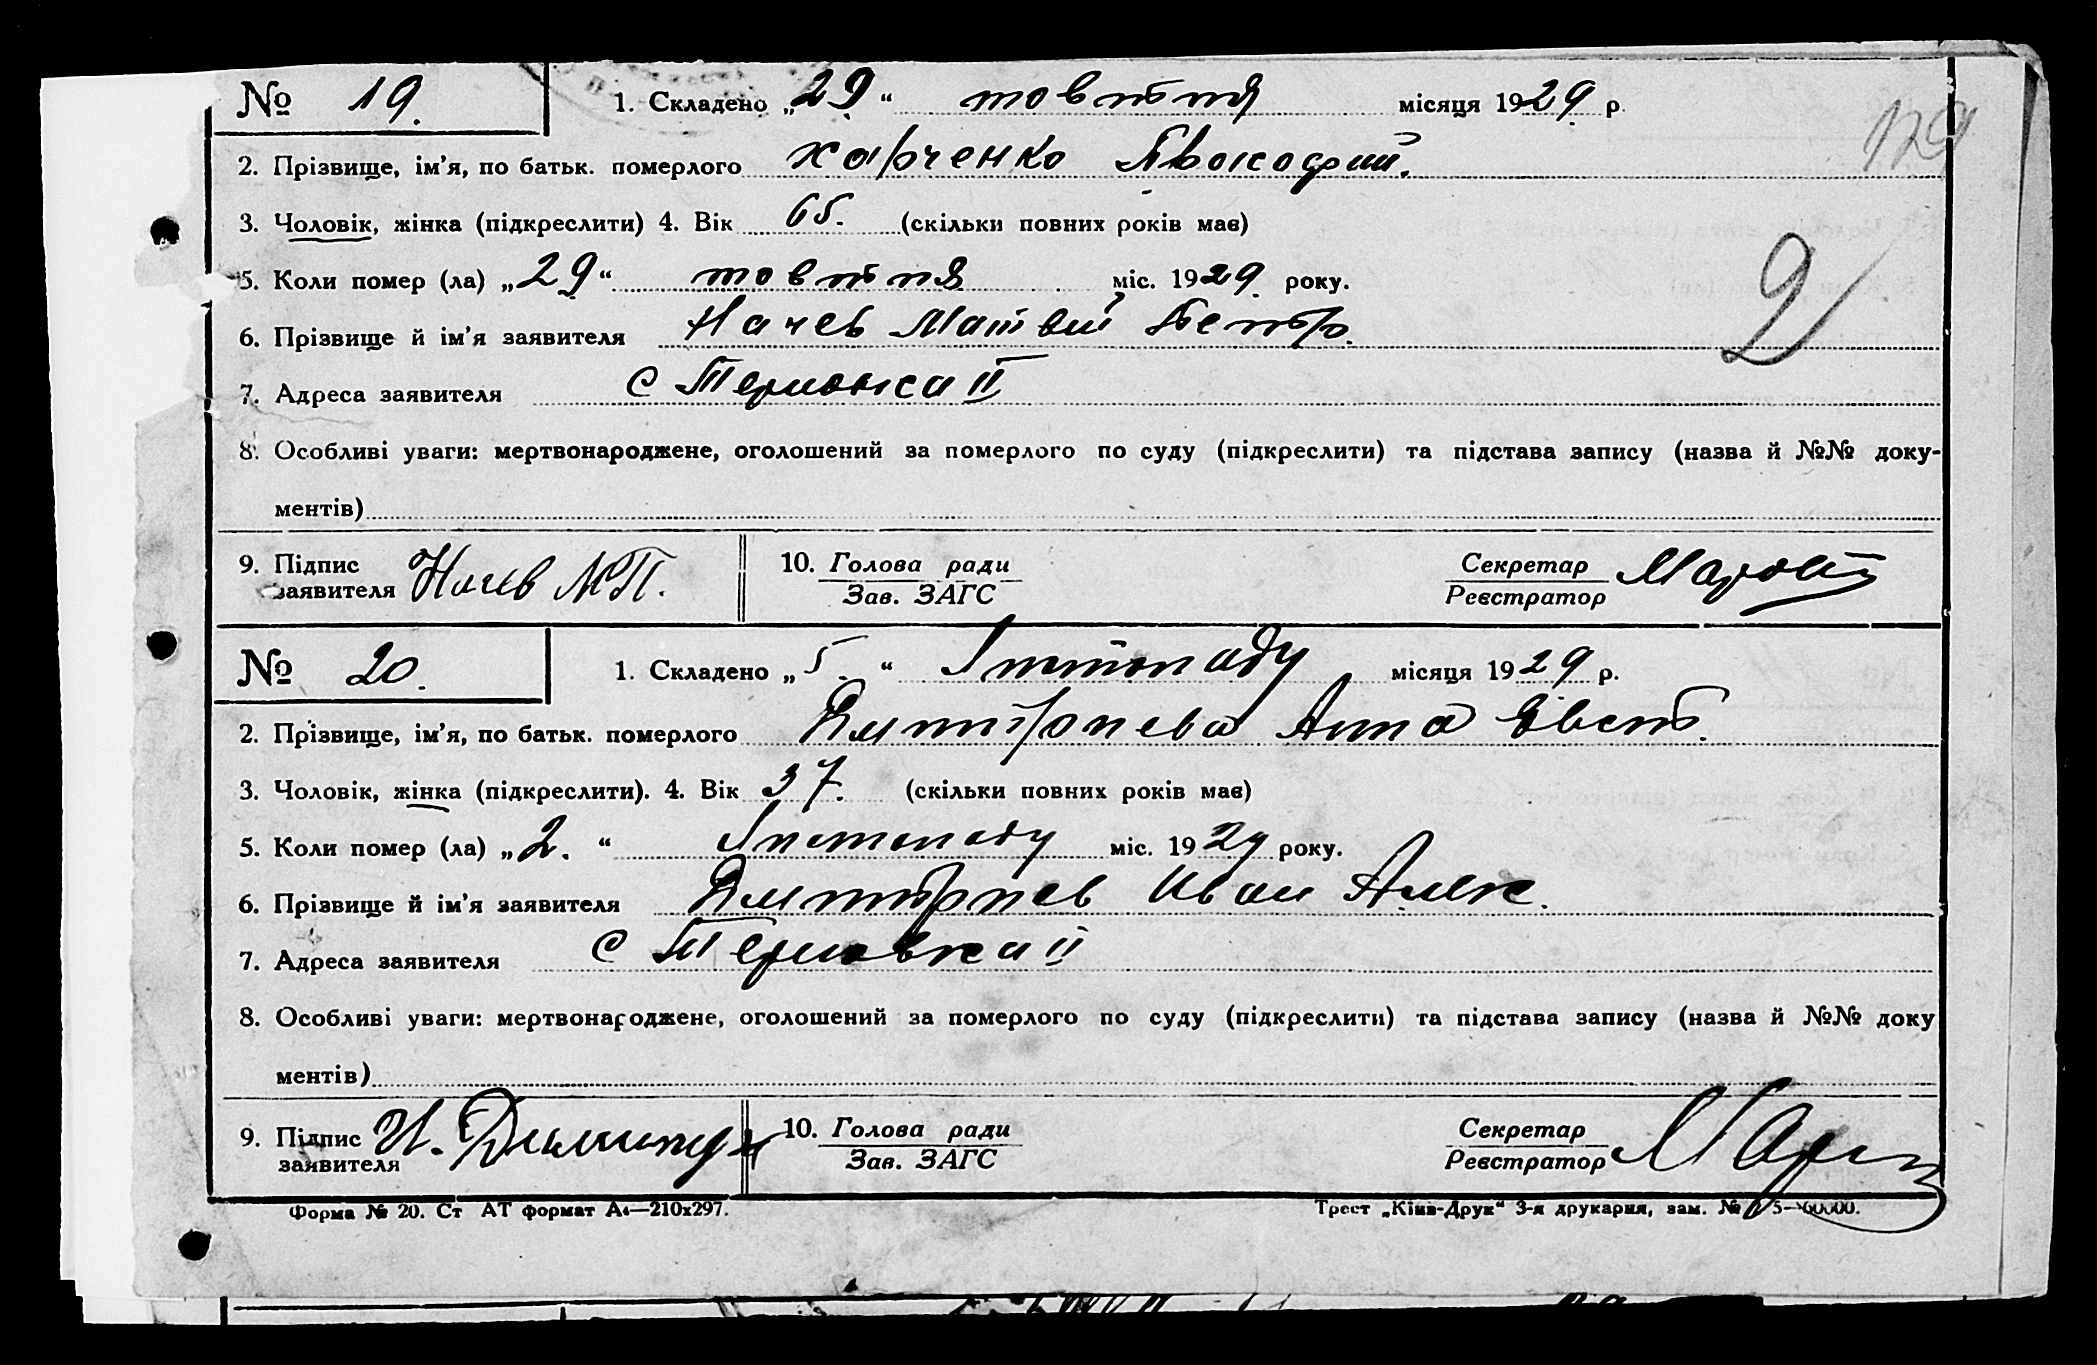 № 19. 1. Складено „29“ товтня місяця 1929 р.
129
2. Прізвище, ім'я, по батьк. померлого Харченко
3. Чоловік, жінка (підкреслити) 4. Вік 65. (скільки повних років має)
5. Коли помер (ла) „29“ товтня міс. 1929 року.
2
6. Прізвище й ім'я заявителя Начев Матвій Петр.
7. Адреса заявителя с Терновка II
8. Особливі уваги: мертвонароджене, оголошений за померлого по суду (підкреслити) та підстава запису (назва й №№ доку-
ментів)
9. Підпис заявителя Начев М.П.
10. Голова ради
Зав. ЗАГС
Секретар
Реєстратор
№ 20. 1. Складено „5.“ Листопаду місяця 1929 р.
2. Прізвище, ім'я, по батьк. померлого Анна Евст.
3. Чоловік, жінка (підкреслити). 4. Вік 37. (скільки повних років має)
5. Коли помер (ла) „2.“ Листопаду міс. 1929 року.
6. Прізвище й ім'я заявителя Иван Алек.
7. Адреса заявителя с Терновка II
8. Особливі уваги: мертвонароджене, оголошений за померлого по суду (підкреслити) та підстава запису (назва й №№ доку
ментів)
9. Підпис заявителя И.
10. Голова ради
Зав. ЗАГС
Секретар
Реєстратор
Форма № 20. Ст АТ формат А4—210х297.
Трест „Київ-Друк“ 3-я друкарня, зам. №